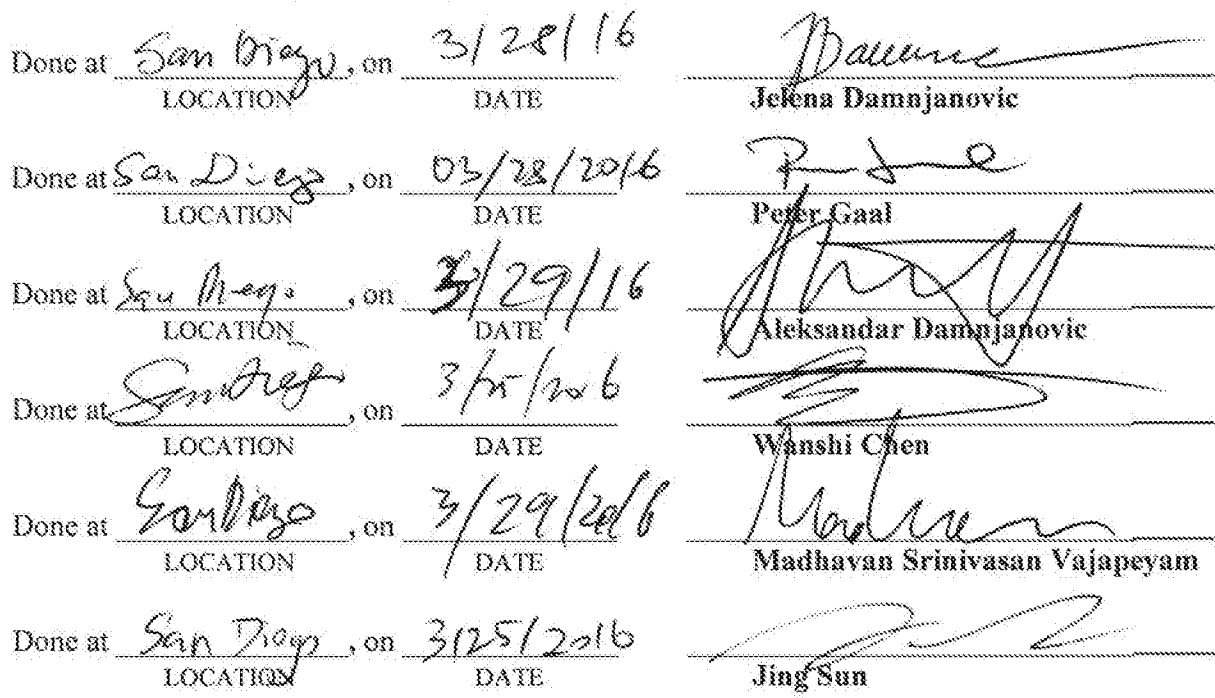 Done at San Diego, on 3/28/16
LOCATION DATE Jelena Damnjanovic
Done at San Diego, on 03/28/2016
LOCATION DATE Peter Gaal
Done at San Diego, on 3/29/16
LOCATION DATE Aleksandar Damnjanovic
Done at San Diego, on 3/25/2016
LOCATION DATE Wanshi Chen
Done at San Diego, on 3/29/2016
LOCATION DATE Madhavan Srinivasan Vajapeyam
Done at San Diego, on 3/25/2016
LOCATION DATE Jing Sun